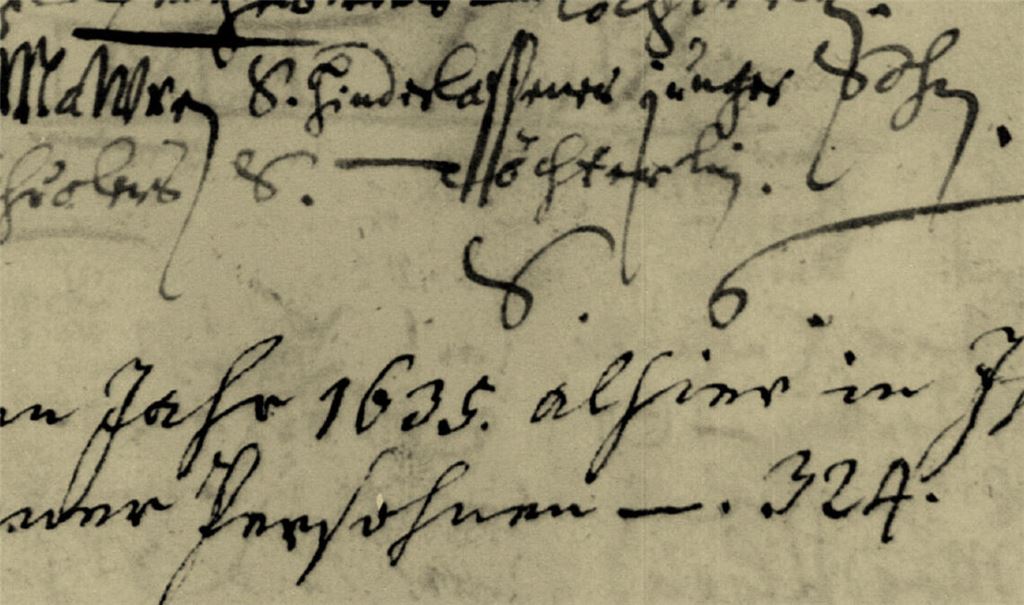 Mawren S. Hinderlassener junger Sohn.
S. — Töchterlin.
S. 6.
Jahr 1635. alhier in
Persohnen —. 324.